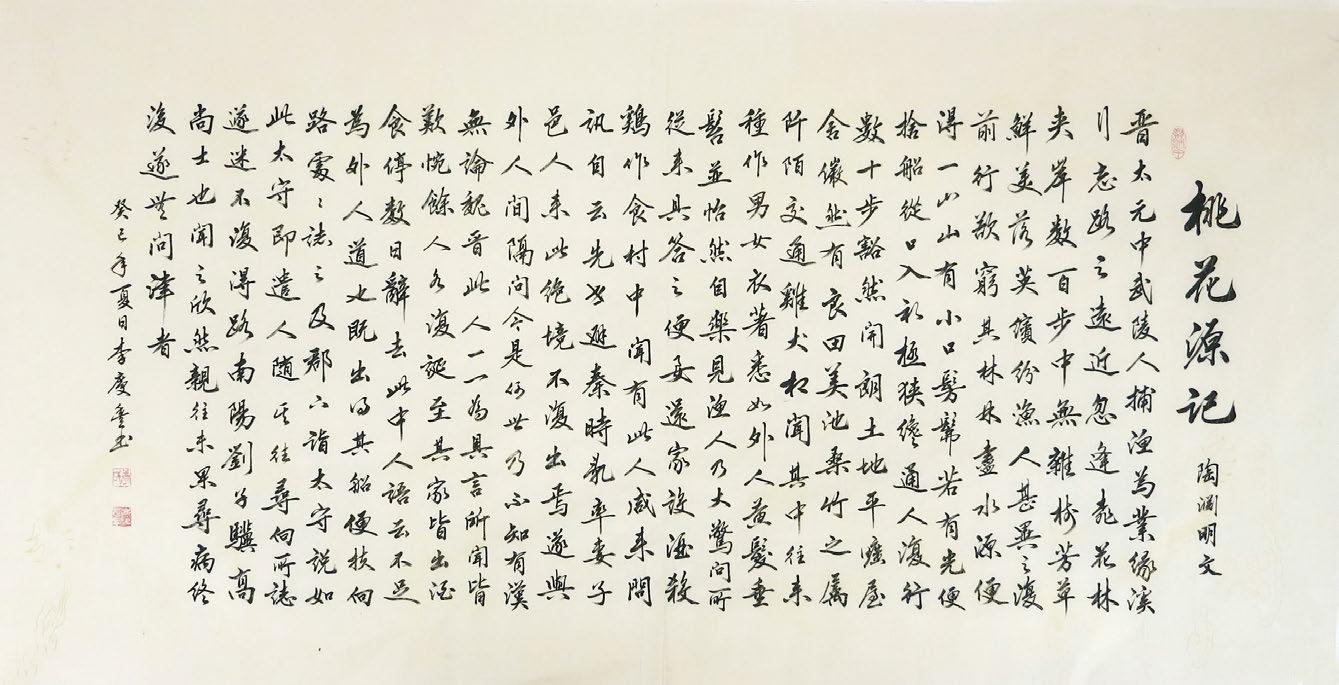 桃花源記
陶渊明文
晋太元中武陵人捕渔為業缘溪
行忘路之遠近忽逢桃花林
夹岸数百步中無雜樹芳草
鮮美落英缤纷渔人甚異之復
前行欲窮其林林盡水源便
得一山山有小口髣髴若有光便
捨船從口入初極狭纔通人復行
數十步豁然開朗土地平曠屋
舍儼然有良田美池桑竹之属
阡陌交通雞犬相聞其中往来
種作男女衣著悉如外人黄髮垂
髫並怡然自樂見渔人乃大驚问所
從来具答之便要還家設酒殺
鷄作食村中聞有此人咸来問
訊自云先世避秦時亂率妻子
邑人来此绝境不復出焉遂與
外人间隔问今是何世乃不知有漢
無論魏晋此人一一為具言所聞皆
歎惋餘人各復延至其家皆出酒
食停数日辭去此中人語云不足
為外人道也既出得其船便扶向
路處〻誌之及郡下詣太守説如
此太守即遣人随其往尋向所誌
遂迷不復得路南陽劉子驥高
尚士也聞之欣然親往未果尋病终
後遂無问津者
癸巳年夏日李慶書